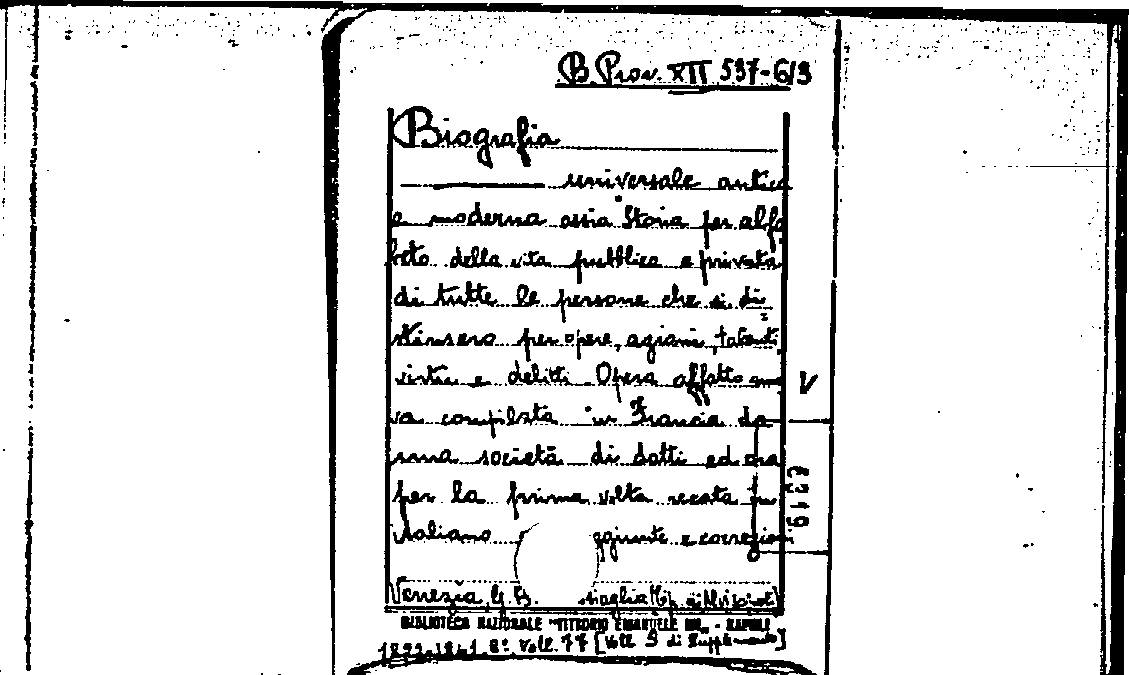 B. Prov. XII 537-613
Biografia
universale antica
e moderna ossia Storia per alfa
beto della vita pubblica e privata
di tutte le persone che si di
stinsero per opere, azioni, talenti,
virtù e delitti. Opera affatto nuo
va compilata in Francia da
una società di dotti ed ora
per la prima volta recata in
italiano aggiunte e correzioni
Venezia, G. B.
BIBLIOTECA NAZIONALE "VITTORIO EMANUELE III" - NAPOLI
1822-1841. 8°. Voll. 77 [Voll. 9 di Supplemento]
V